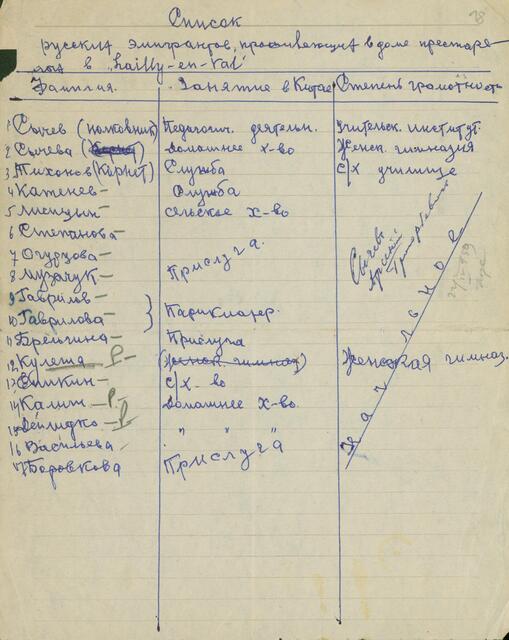 Список
русских эмигрантов, проживающих в доме престаре-
лых в "Lailly-en-Val"
Фамилия. Занятие в Китае Степень грамотность
1 Сычев (полковник) Педагогич. деятельн. Учительск. институт.
2 Сычева Домашнее х-во Женск. гимназия
3 Тихонов (Корнет) Служба С/х училище
4 Каменев - Служба
5 Лисицын - сельское х-во
6 Степанова -
7 Огурцова -
8 Музачук - Прислуга.
9 Гаврилов -
10 Гаврилова - Парикмахер.
11 Брейгина - Прислуга
12 Кулеша - Р- (Женск. гимназ) Женская гимназ.
13 Симкин - С/х-во
14 Калин - Р- Домашнее х-во.
15 - Р " " "
16 Васильева -
17 Боровкова Прислуга
Начальное
Сычев
28